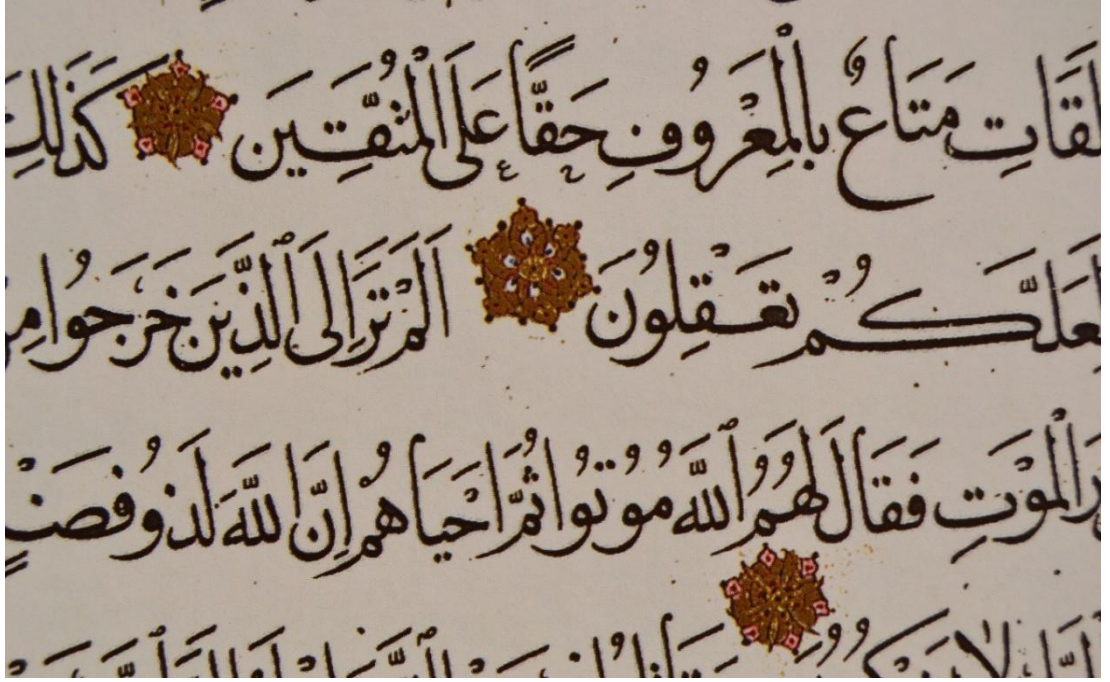 لَقَاتِ مَتَاعٌ بِالْمَعْرُوفِ حَقًّا عَلَى الْمُتَّقِينَ كَذَلِكَ
لَعَلَّكُمْ تَعْقِلُونَ اَلَمْ تَرَ اِلَى الَّذِينَ خَرَجُوا مِن
الْمَوْتِ فَقَالَ لَهُمُ اللَّهُ مُوتُوا ثُمَّ اَحْيَاهُمْ اِنَّ اللَّهَ لَذُو فَضْلٍ